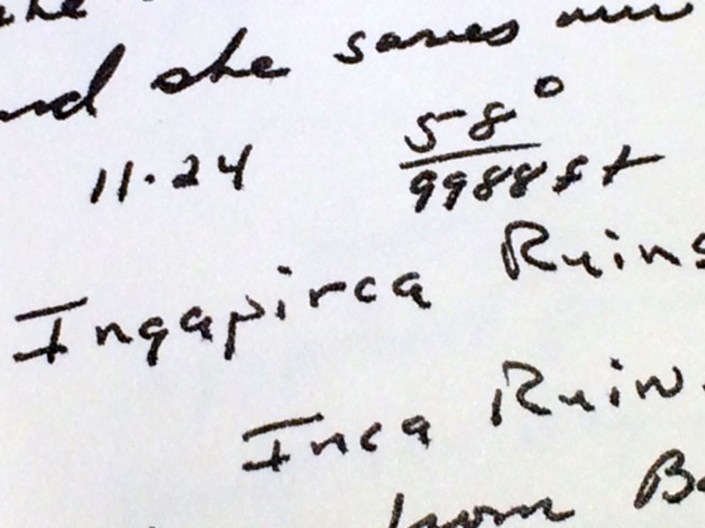 she saves
11.24 58°
9988 ft
Ingapirca Ruins
Inca Ruin
from